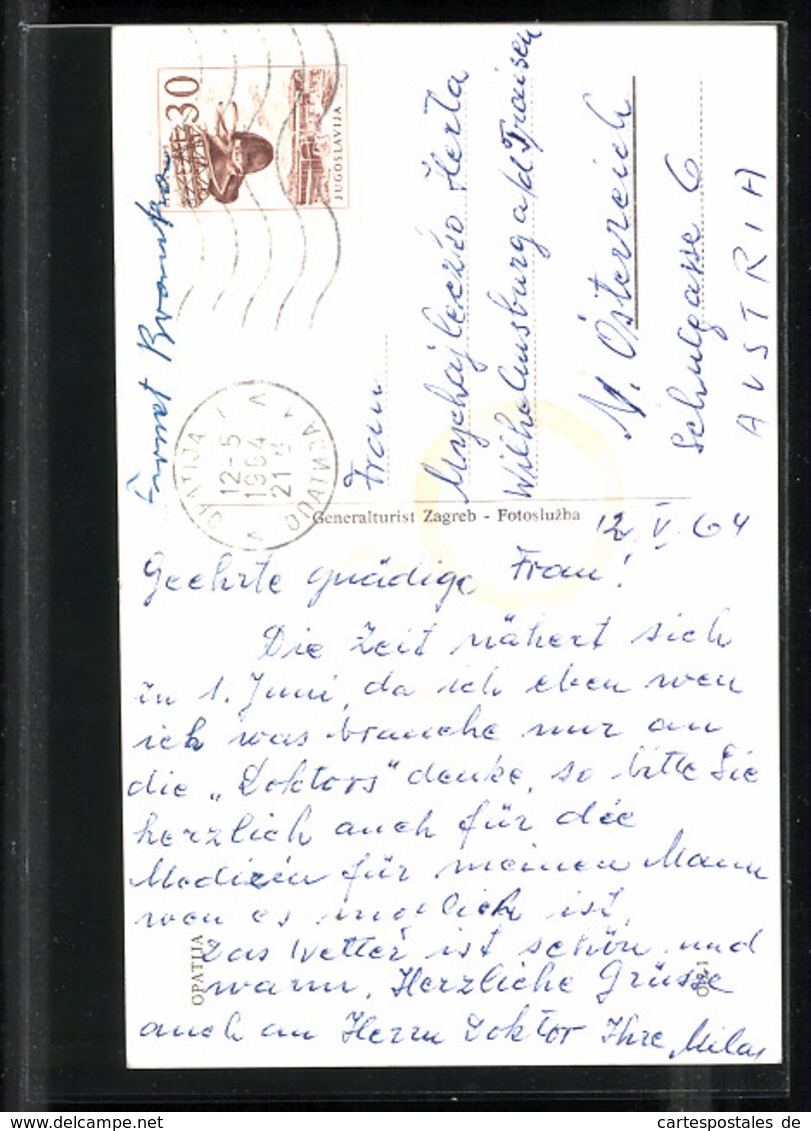 30
JUGOSLAVIJA
OPATIJA
12-5
1964
21
ОПАТИЈА
Frau
Mychajleczko Herta
Wilhelmsburg a/d Traisen
N. Österreich
Schulgasse 6
AUSTRIA
Generalturist Zagreb - Fotoslužba
12. V. 64
Geehrte gnädige Frau!
Die Zeit nähert sich
in 1. Juni, da ich eben wen
ich was brauche nur an
die „Doktors" denke, so bitte Sie
herzlich auch für die
Medizin für meinen Mann
wen es möglich ist.
Das Wetter ist schön und
warm. Herzliche Grüsse
auch an Herrn Doktor Ihre
OPATIJA
cartespostales de